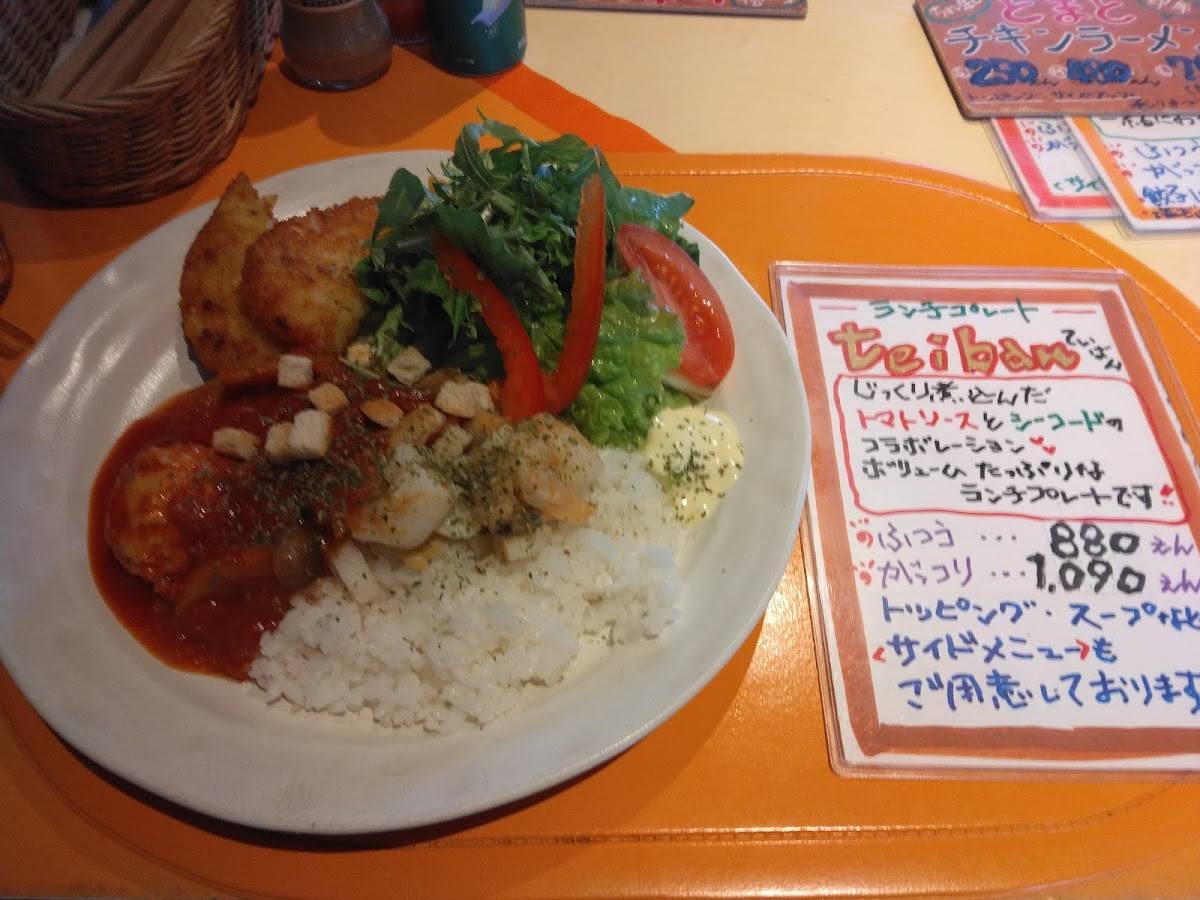 とまと
チキンラーメン
250えん 480えん 7
トッピング、サイズアップ
ふつう
がっつ
ランチプレート
teiban ていばん
じっくり煮込んだ
トマトソースとシーフードの
コラボレーション
ボリュームたっぷりな
ランチプレートです
ふつう … 880えん
がっつり … 1,090えん
トッピング・スープなど
サイドメニューも
ご用意しております